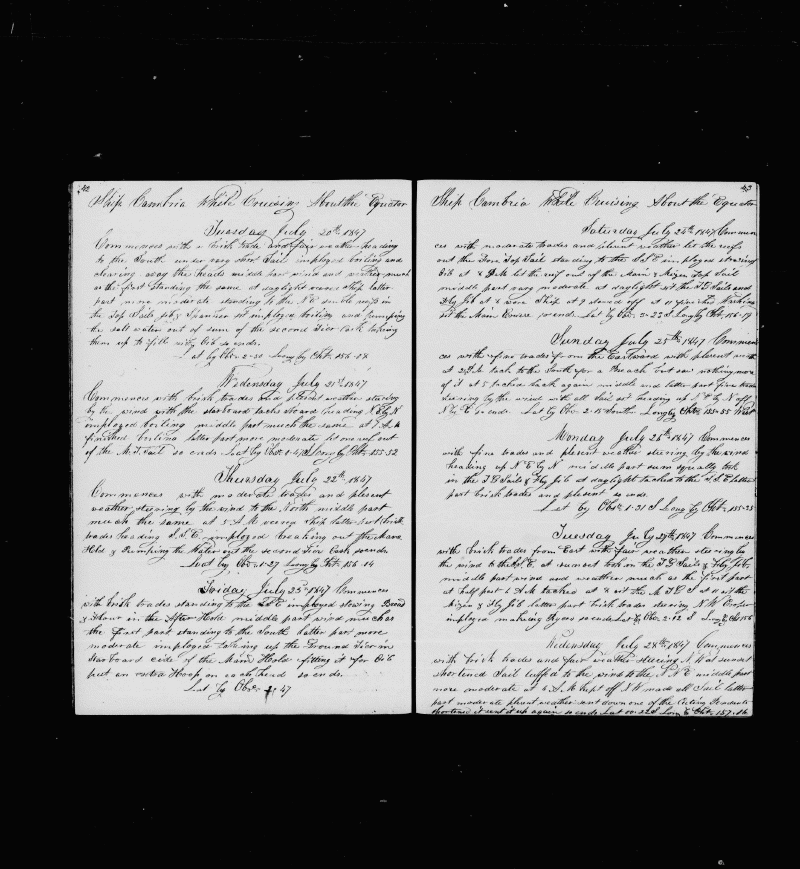 42
Ship Cambria While Cruising About the Equator
Tuesday July 20th 1847
Commences with a brisk trade and fair weather heading
to the South under easy short Sail imployed boiling and
clewing away the heads middle part wind and weather much
as the first standing the same at daylight weared ship latter
part more moderate standing to the N E reefs in
the Top Sails jib & Spanker set imployed boiling and pumping
the salt water out of sum of the second Tier Cask taking
them up to fill with Oil so ends.
Lat by Obs. 2-20 Long by Cht. 156-28
Wednesday July 21st 1847
Commences with brisk trades and plesent weather steering
by the wind with the starboard tacks aboard heading N E by N
imployed boiling middle part much the same at 7 A M
finished boiling latter part more moderate let one reef out
of the M. T. Sail so ends Lat by Obs. Long by Cht. 155-52
Thursday July 22th 1847
Commences with moderate trades and plesent
weather steering by the wind to the North middle part
much the same at 5 A M weared ship latter part brisk
trades heading S. S. E. imployed breaking out the Main
Hold & Pumping the Water out the second Tier Cask so ends
Lat by Obs. 1-27 Long by Cht. 156-14
Friday July 23rd 1847 Commences
with brisk trades standing to the imployed stowing Bread
& Flour in the After Hole middle part wind much as
the first part standing to the South latter part more
moderate imployed taking up the Ground Tier in
Starboard side of the Main Hoold fitting it for Oil
put an extra Hoop on each head so ends.
Lat by Obs. 47
43
Ship Cambria While Cruising About the Equator
Saturday July 24th 1847 Commen
ces with moderate trades and plesent weather let the reefs
out the Fore Top Sail standing to the S. E imployed stowing
Oil at let the reef out of the Main & Mizen Top Sail
middle part very moderate at daylight set the T G Sails and
Fly Jib at saw Ship at 9 stood off at 11
set the Main Course so ends. Lat by Obs. 2-22 S Long by Cht. 156-17
Sunday July 25th 1847 Commen
ces with fine trades from the Eastward with plesent weath
at 2 P. M. tack to the South for a Breach but saw nothing more
of it at 5 tacked back again middle and latter part fine trades
steering by the wind with all Sail set heading up N E by N off
N by E so ends Lat by Obs. 2-15 South Long by Cht. 155-55 West
Monday July 26th 1847 Commences
with fine trades and plesent weather steering by the wind
heading up N E by N middle part sum squally took
in the T G Sails & Fly Jib at daylight tacked to the S. S. E latter
part brisk trades and plesent so ends.
Lat by Obs. 1-31 S Long by Cht. 155-25
Tuesday July 27th 1847 Commences
with brisk trades from East with fair weather steering by
the wind to the N. E. at sunset took in the T G Sails & Fly Jib
middle part wind and weather much as the first part
at half past 1 A M tacked at 8 set the M T G S at 11 set the
Mizen & Fly Jib latter part brisk trades steering N W Cooper
imployed makeing so ends Lat by Obs. 2-12 S Long by Cht 156
Wednesday July 28th 1847 Commences
with brisk trades and fair weather steering N W at sunset
shortened Sail luffed to the wind to the N E middle part
more moderate at 4 A. M. kept off N W made all Sail latter
part moderate plesent weather sent down one of the
shortened it sent it up again so ends Lat 00-22 S Long by Cht. 157-16